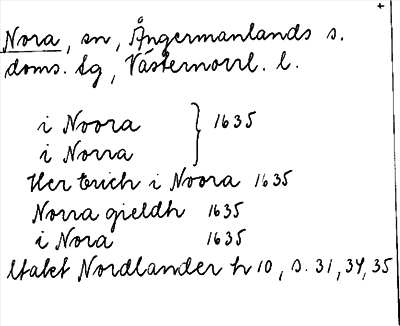 Nora, sn, Ångermanlands s.
doms. lg, Västernorrl. l.
i Noora } 1635
i Norra
Her Erich i Noora 1635
Norra gieldh 1635
i Nora 1635
Utalet Nordlander h 10, s. 31, 34, 35